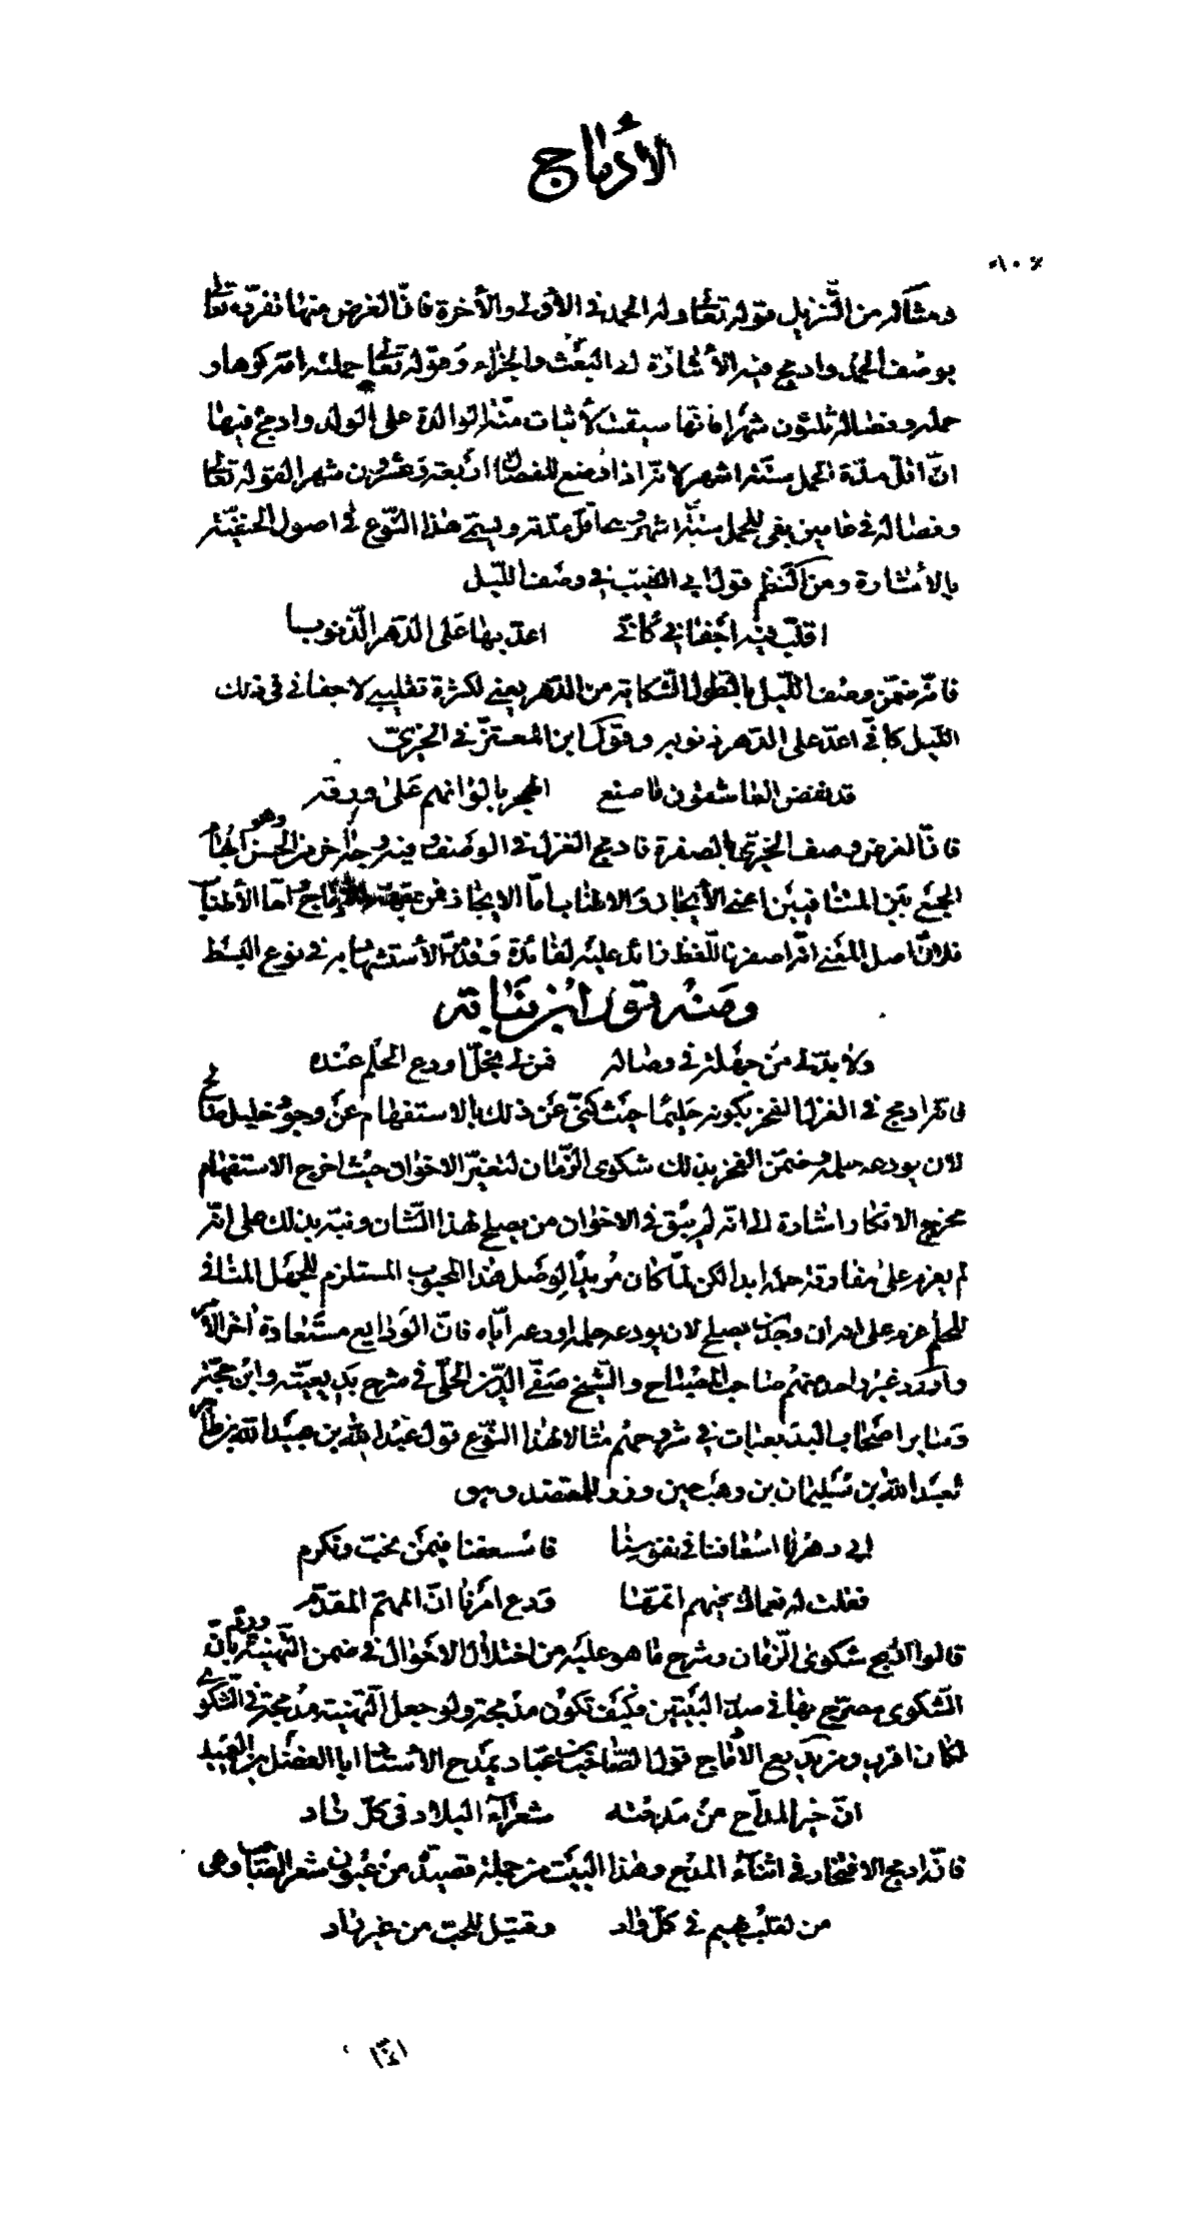 الأدماج
ومثاله من التنزيل قوله تعالى وله الحمد في الأولى والأخرة فان الغرض منها تفرده تعالى
بوصف الحمد وادمج فيه الأشارة الى البعث والجزاء وقوله تعالى حملته امه كرها و
حمله وفصاله ثلثون شهرا فانها سيقت لأثبات منة الوالدة على الولد وادمج فيها
ان اقل مدة الحمل ستة اشهر لانه اذا وضع للفصال اربعة وعشرون شهرا لقوله تعالى
وفصاله في عامين بقى للحمل ستة اشهر وهي اقل مدته ويسمى هذا النوع في اصول الحنفية
بالأشارة ومن النظم قول ابي الطيب في وصف الليل
اقلب فيه اجفاني كأني اعد بها على الدهر الذنوبا
فانه ضمن وصف الليل بالطول الشكاية من الدهر يعني لكثرة تقليبي لاجفاني في ذلك
الليل كأني اعد على الدهر ذنوبه وقول ابن المعتز في الخيري
قد نفض العاشقون ما صنع الهجر بالوانهم على ورقه
فان الغرض وصف الخيري بالصفرة فادمج الغزل في الوصف وفيه وجه اخر من الحسن وهو ايهام
الجمع بين المتنافيين اعني الأيجاز والاطناب اما الايجاز فمن جهة الادماج واما الأطناب
فلان اصل المعنى انه اصفر فاللفظ زائد عليه لفائدة وقد مر الأستشهاد به في نوع البسط
ومنه قول ابن نباتة
ولا بد لي من جهلة في وصاله فمن لي بخل اودع الحلم عنده
فانه ادمج في الغزل الفخر بكونه حليما حيث كنى عن ذلك بالاستفهام عن وجود خليل صالح
لان يودعه حلمه وضمن الفخر بذلك شكوى الزمان لتغير الاخوان حيث اخرج الاستفهام
مخرج الانكار اشارة الى انه لم يبق في الاخوان من يصلح لهذا الشان ونبه بذلك على انه
لم يعزم على مفارقة حلمه ابدا لكن لما كان مريدا لوصل هذا المحبوب المستلزم للجهل المنافي
للحلم عزم على انه ان وجد من يصلح لان يودعه حلمه اودعه اياه فان الودايع مستعادة اخر الأمر
واورد غير واحد منهم صاحب المصباح والشيخ صفي الدين الحلي في شرح بديعيته وابن حجة
وساير اصحاب البديعيات في شروحهم مثالا لهذا النوع قول عبد الله بن عبيد الله بن طاهر
لعبيد الله بن سليمان بن وهب حين وزر للمعتضد وهو
ابى دهرنا اسعافنا في نفوسنا فاسعفنا فيمن نحب ونكرم
فقلت له نعماك فيهم اتمها ودع امرنا ان المهم المقدم
قالوا ادمج شكوى الزمان وشرح ما هو عليه من اختلال الاحوال في ضمن التهنية ورد بان
الشكوى مصرح بها في صدر البيتين فكيف تكون مدمجة ولو جعل التهنية مدمجة في الشكوى
لكان اقرب ومن بديع الأدماج قول الصاحب بن عباد يمدح الأستاذ ابا الفضل بن العميد
ان خير المداح من مدحته شعراء البلاد في كل ناد
فانه ادمج الافتخار في اثناء المدح وهذا البيت من جملة قصيدة من عيون شعر الصاحب وهي
من لقلب يهيم في كل واد وقتيل للحب من غير واد